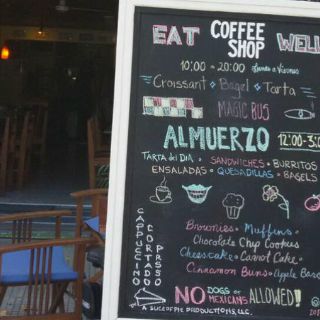 EAT COFFEE SHOP WELL
10:00 a 20:00 Lunes a Viernes
Croissant Bagel Tarta
MAGIC BUS
ALMUERZO 12:00-3:0
TARTA del DIA • SANDWICHES • BURRITOS
ENSALADAS • QUESADILLAS • BAGELS
CAPPUCCINO
CORTADO
Brownies • Muffins •
Chocolate Chip Cookies
Cheesecake • Carrot Cake •
Cinnamon Buns • Apple
NO DOGS or MEXICANS ALLOWED!
A PRODUCTIONS, LLC.